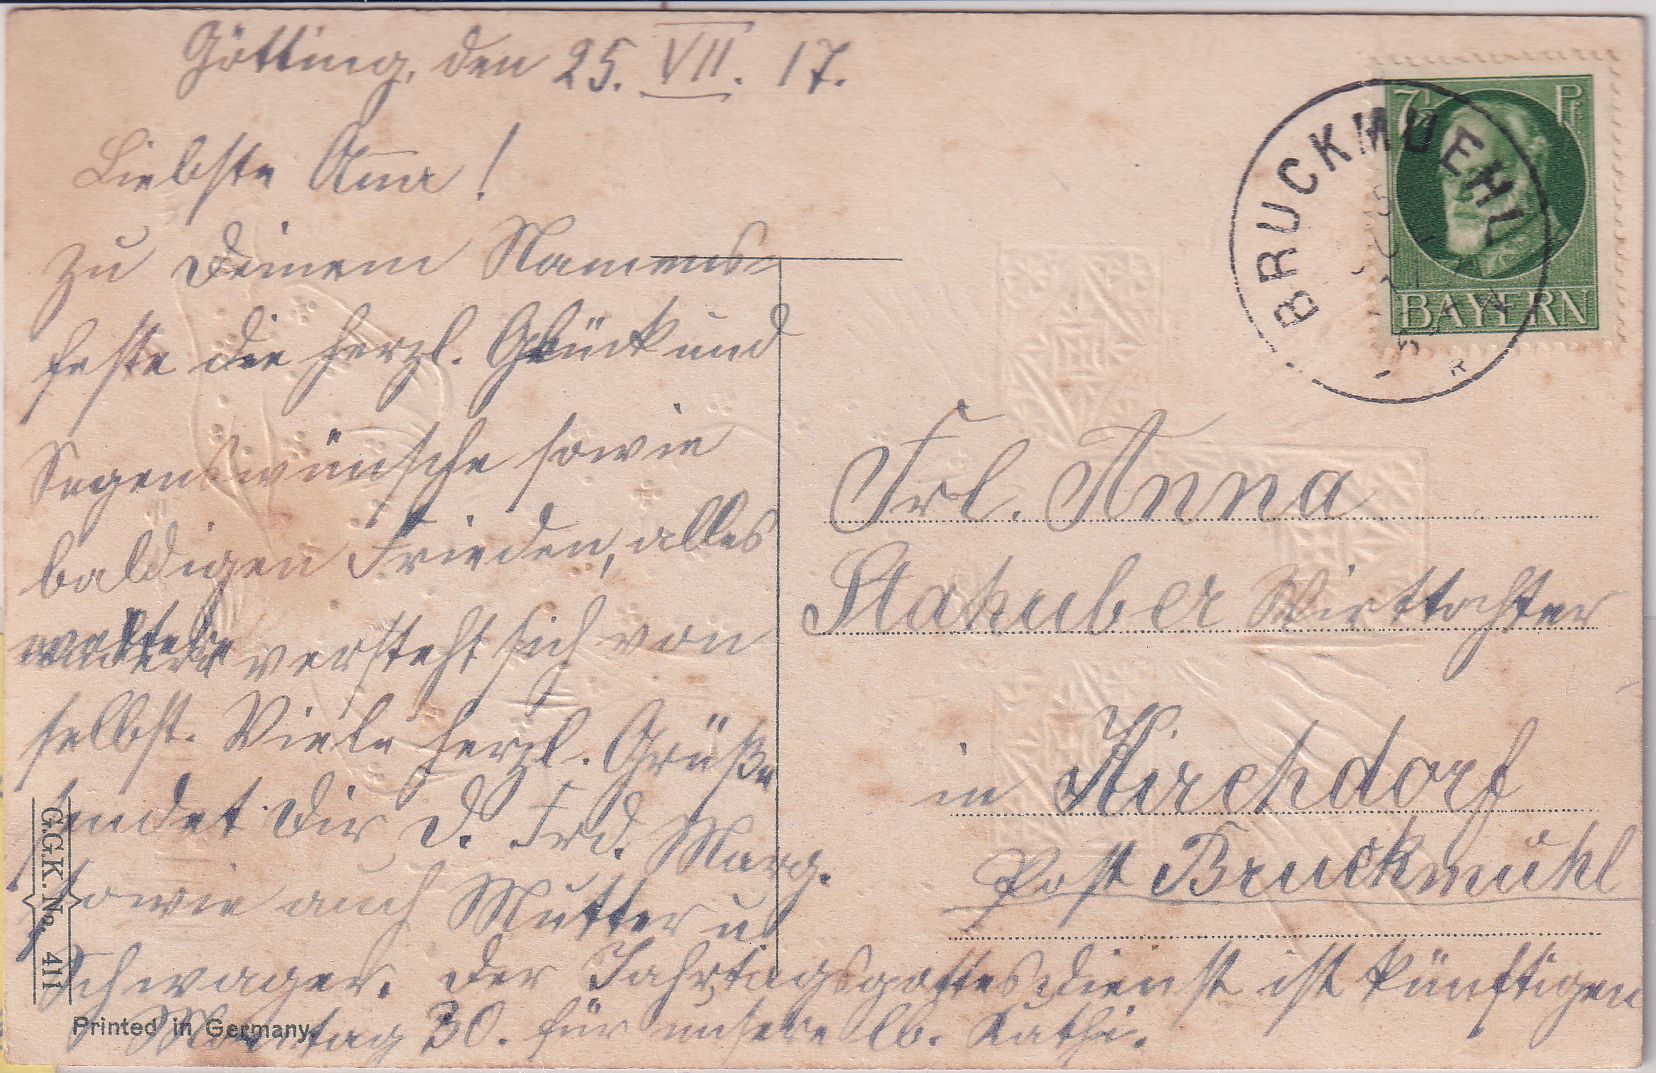 Götting, den 25. VII. 17.
Liebste Anna!
Zu Deinem Namens-
feste die herzl. Glück und
Segenswünsche sowie
baldigen Frieden, alles
weitere versteht sich von
selbst. Viele herzl. Grüße
sendet Dir d. Frd. Marg.
sowie auch Mutter u
Schwager. Der Jahrtagsgottesdienst ist künftigen
Montag 30. für unsere lb. Kathi.
7½ Pf
BAYERN
BRUCKMUEHL
Frl. Anna
Stahuber Wirttochter
in Kirchdorf
Post Bruckmühl
G.G.K. No. 411
Printed in Germany